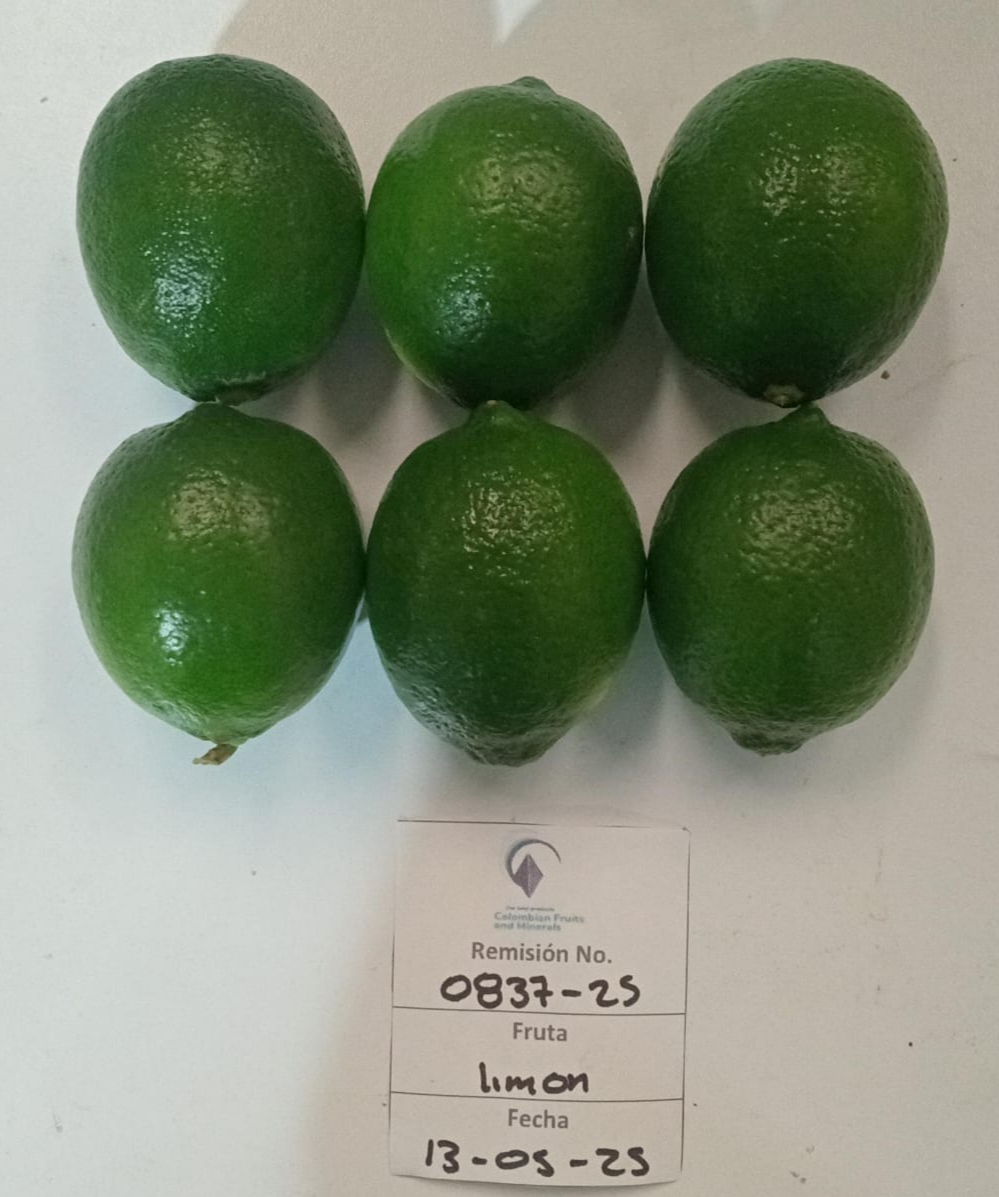 Colombian Fruits
and Minerals
Remisión No.
0837-25
Fruta
limon
Fecha
13-05-25